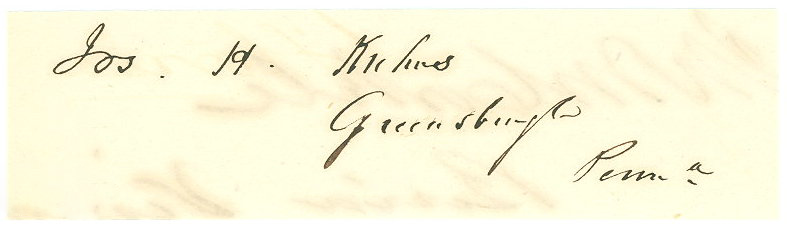 Jos. H. Kuhns
Greensburgh
Penna